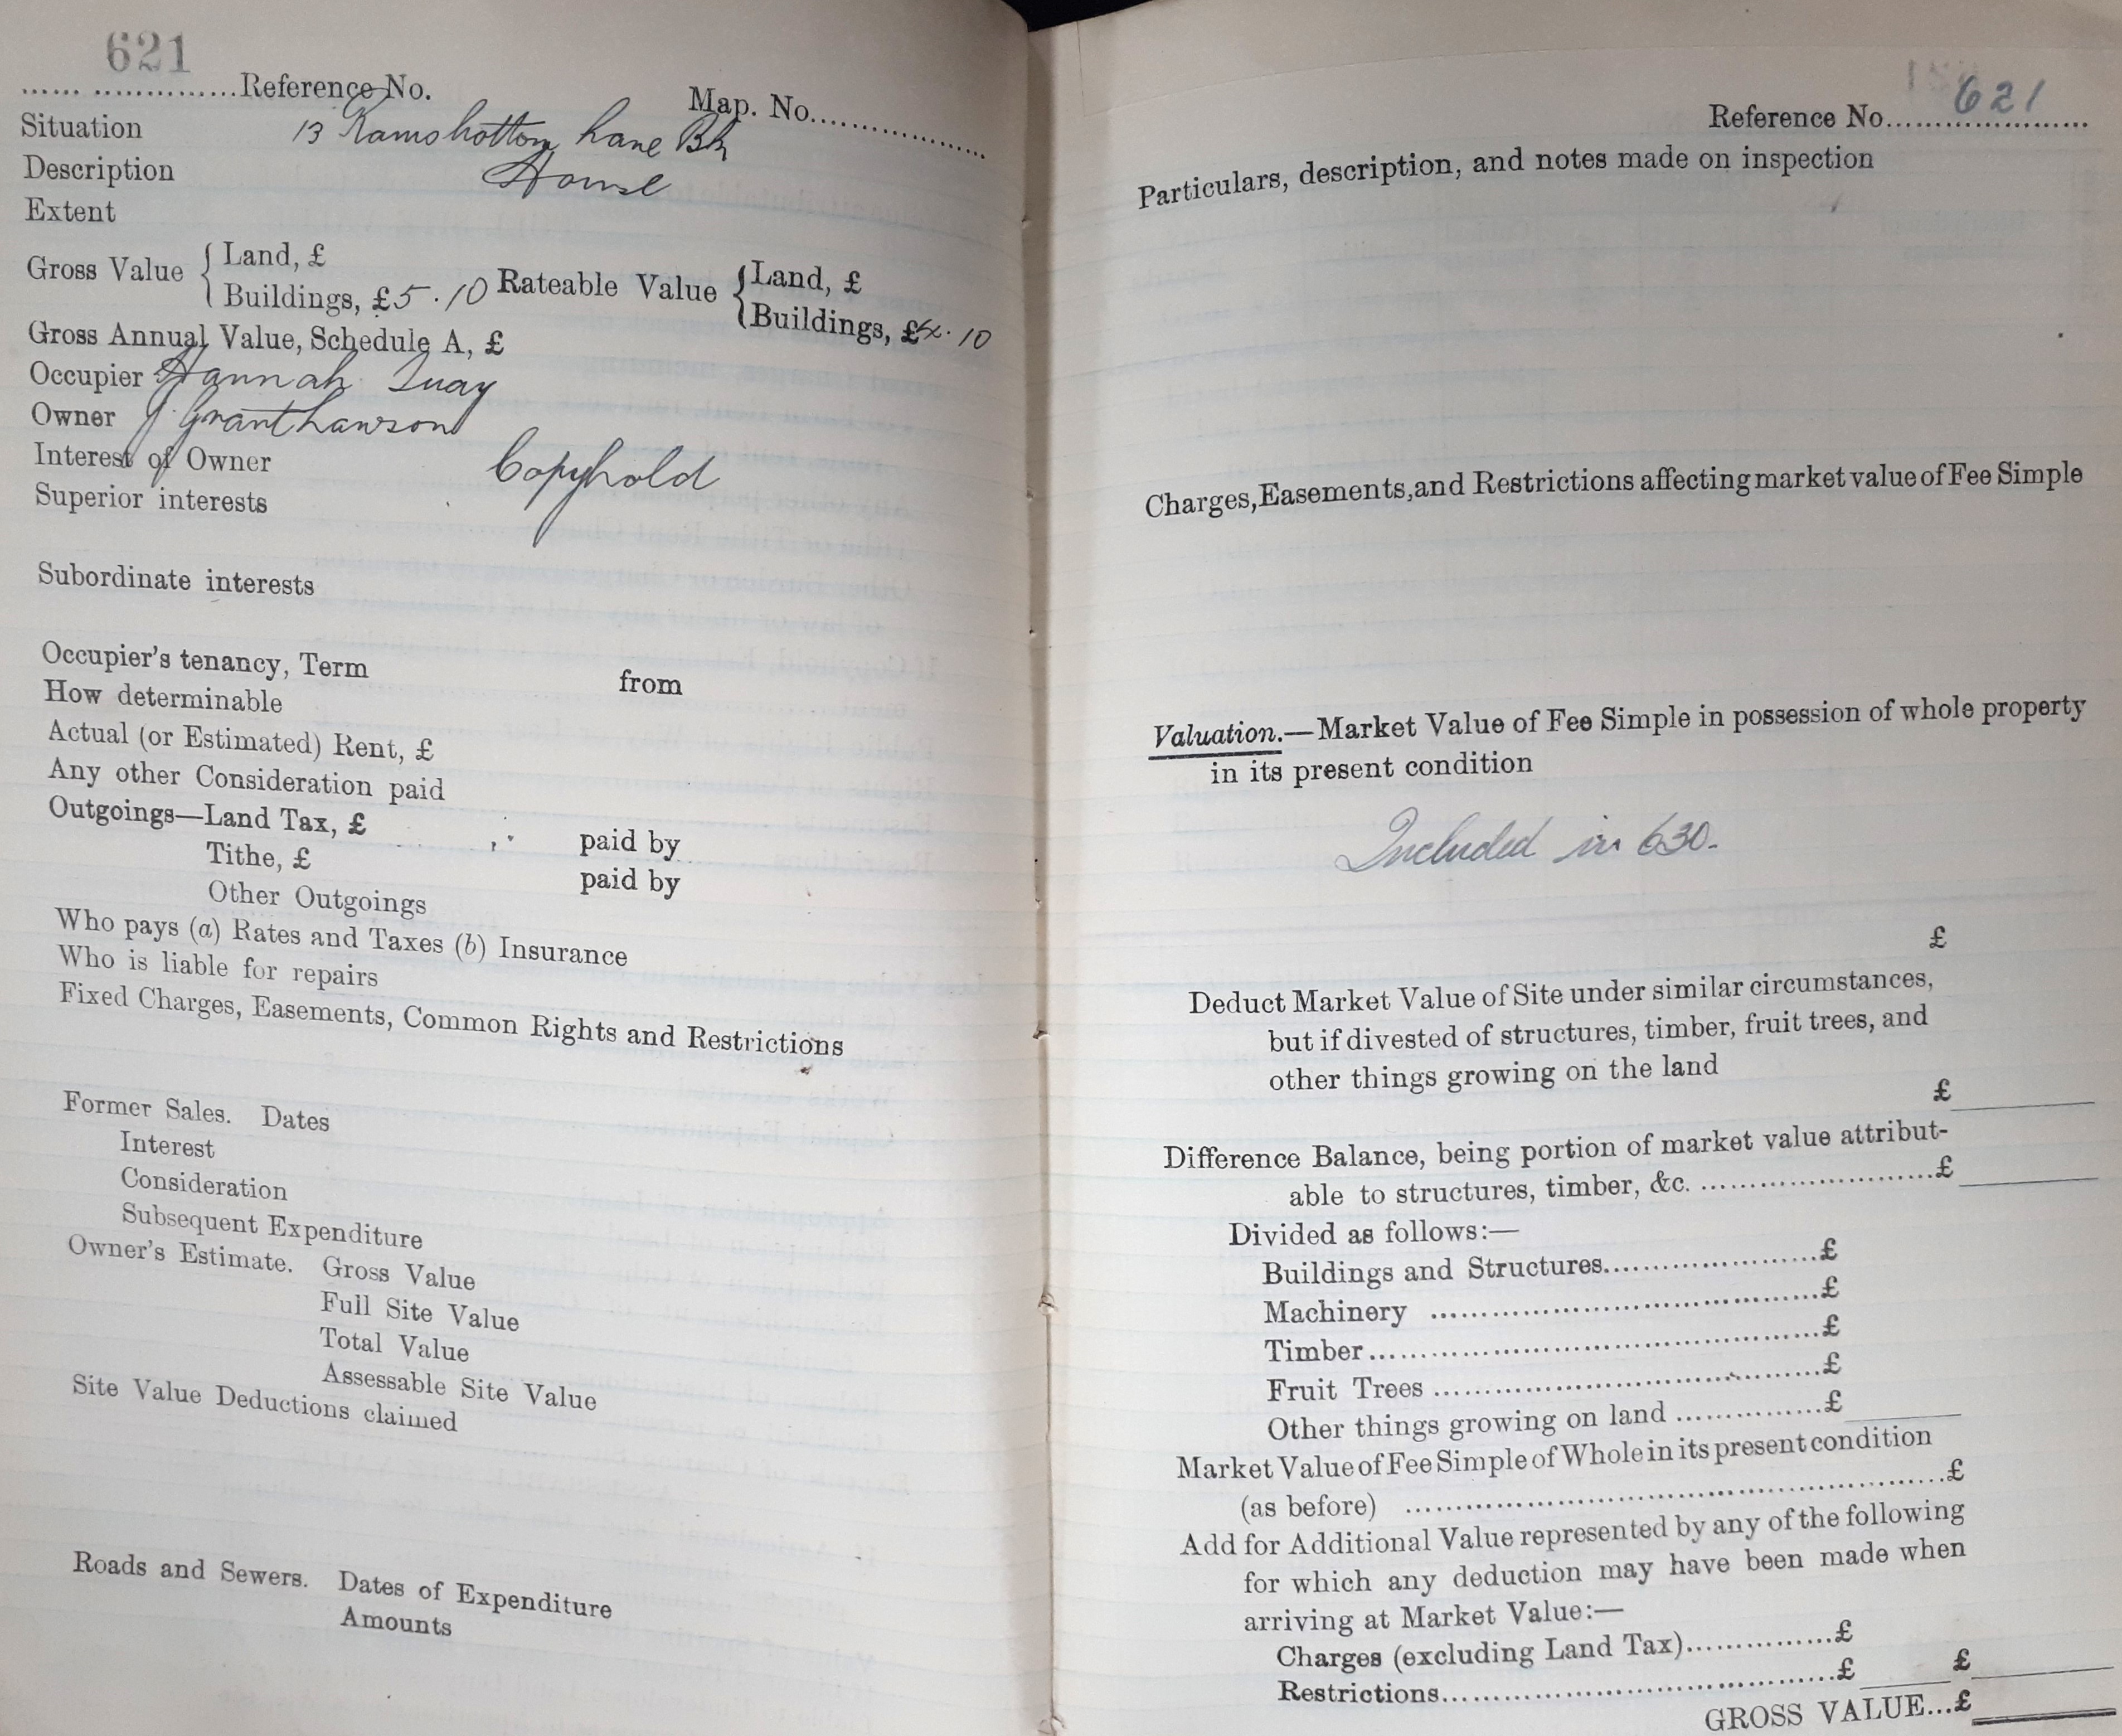 621
...... ..............Reference No.
Map. No..................
Situation 13 Ramsbottom Lane Bk
Description House
Extent
Gross Value { Land, £
Buildings, £5 . 10
Rateable Value { Land, £
Buildings, £4 . 10
Gross Annual Value, Schedule A, £
Occupier Hannah Quay
Owner J. Grant Lawson
Interest of Owner Copyhold
Superior interests
Subordinate interests
Occupier's tenancy, Term from
How determinable
Actual (or Estimated) Rent, £
Any other Consideration paid
Outgoings—Land Tax, £ paid by
Tithe, £ paid by
Other Outgoings
Who pays (a) Rates and Taxes (b) Insurance
Who is liable for repairs
Fixed Charges, Easements, Common Rights and Restrictions
Former Sales. Dates
Interest
Consideration
Subsequent Expenditure
Owner's Estimate. Gross Value
Full Site Value
Total Value
Assessable Site Value
Site Value Deductions claimed
Roads and Sewers. Dates of Expenditure
Amounts
Reference No. 621
Particulars, description, and notes made on inspection
Charges, Easements, and Restrictions affecting market value of Fee Simple
Valuation.—Market Value of Fee Simple in possession of whole property
in its present condition
Included in 630.
£
Deduct Market Value of Site under similar circumstances,
but if divested of structures, timber, fruit trees, and
other things growing on the land
£
Difference Balance, being portion of market value attribut-
able to structures, timber, &c. ........................£
Divided as follows:—
Buildings and Structures......................£
Machinery ........................................£
Timber..............................................£
Fruit Trees .......................................£
Other things growing on land ...............£
Market Value of Fee Simple of Whole in its present condition
(as before) .......................................................£
Add for Additional Value represented by any of the following
for which any deduction may have been made when
arriving at Market Value:—
Charges (excluding Land Tax)...............£
Restrictions.......................................£ £
GROSS VALUE...£